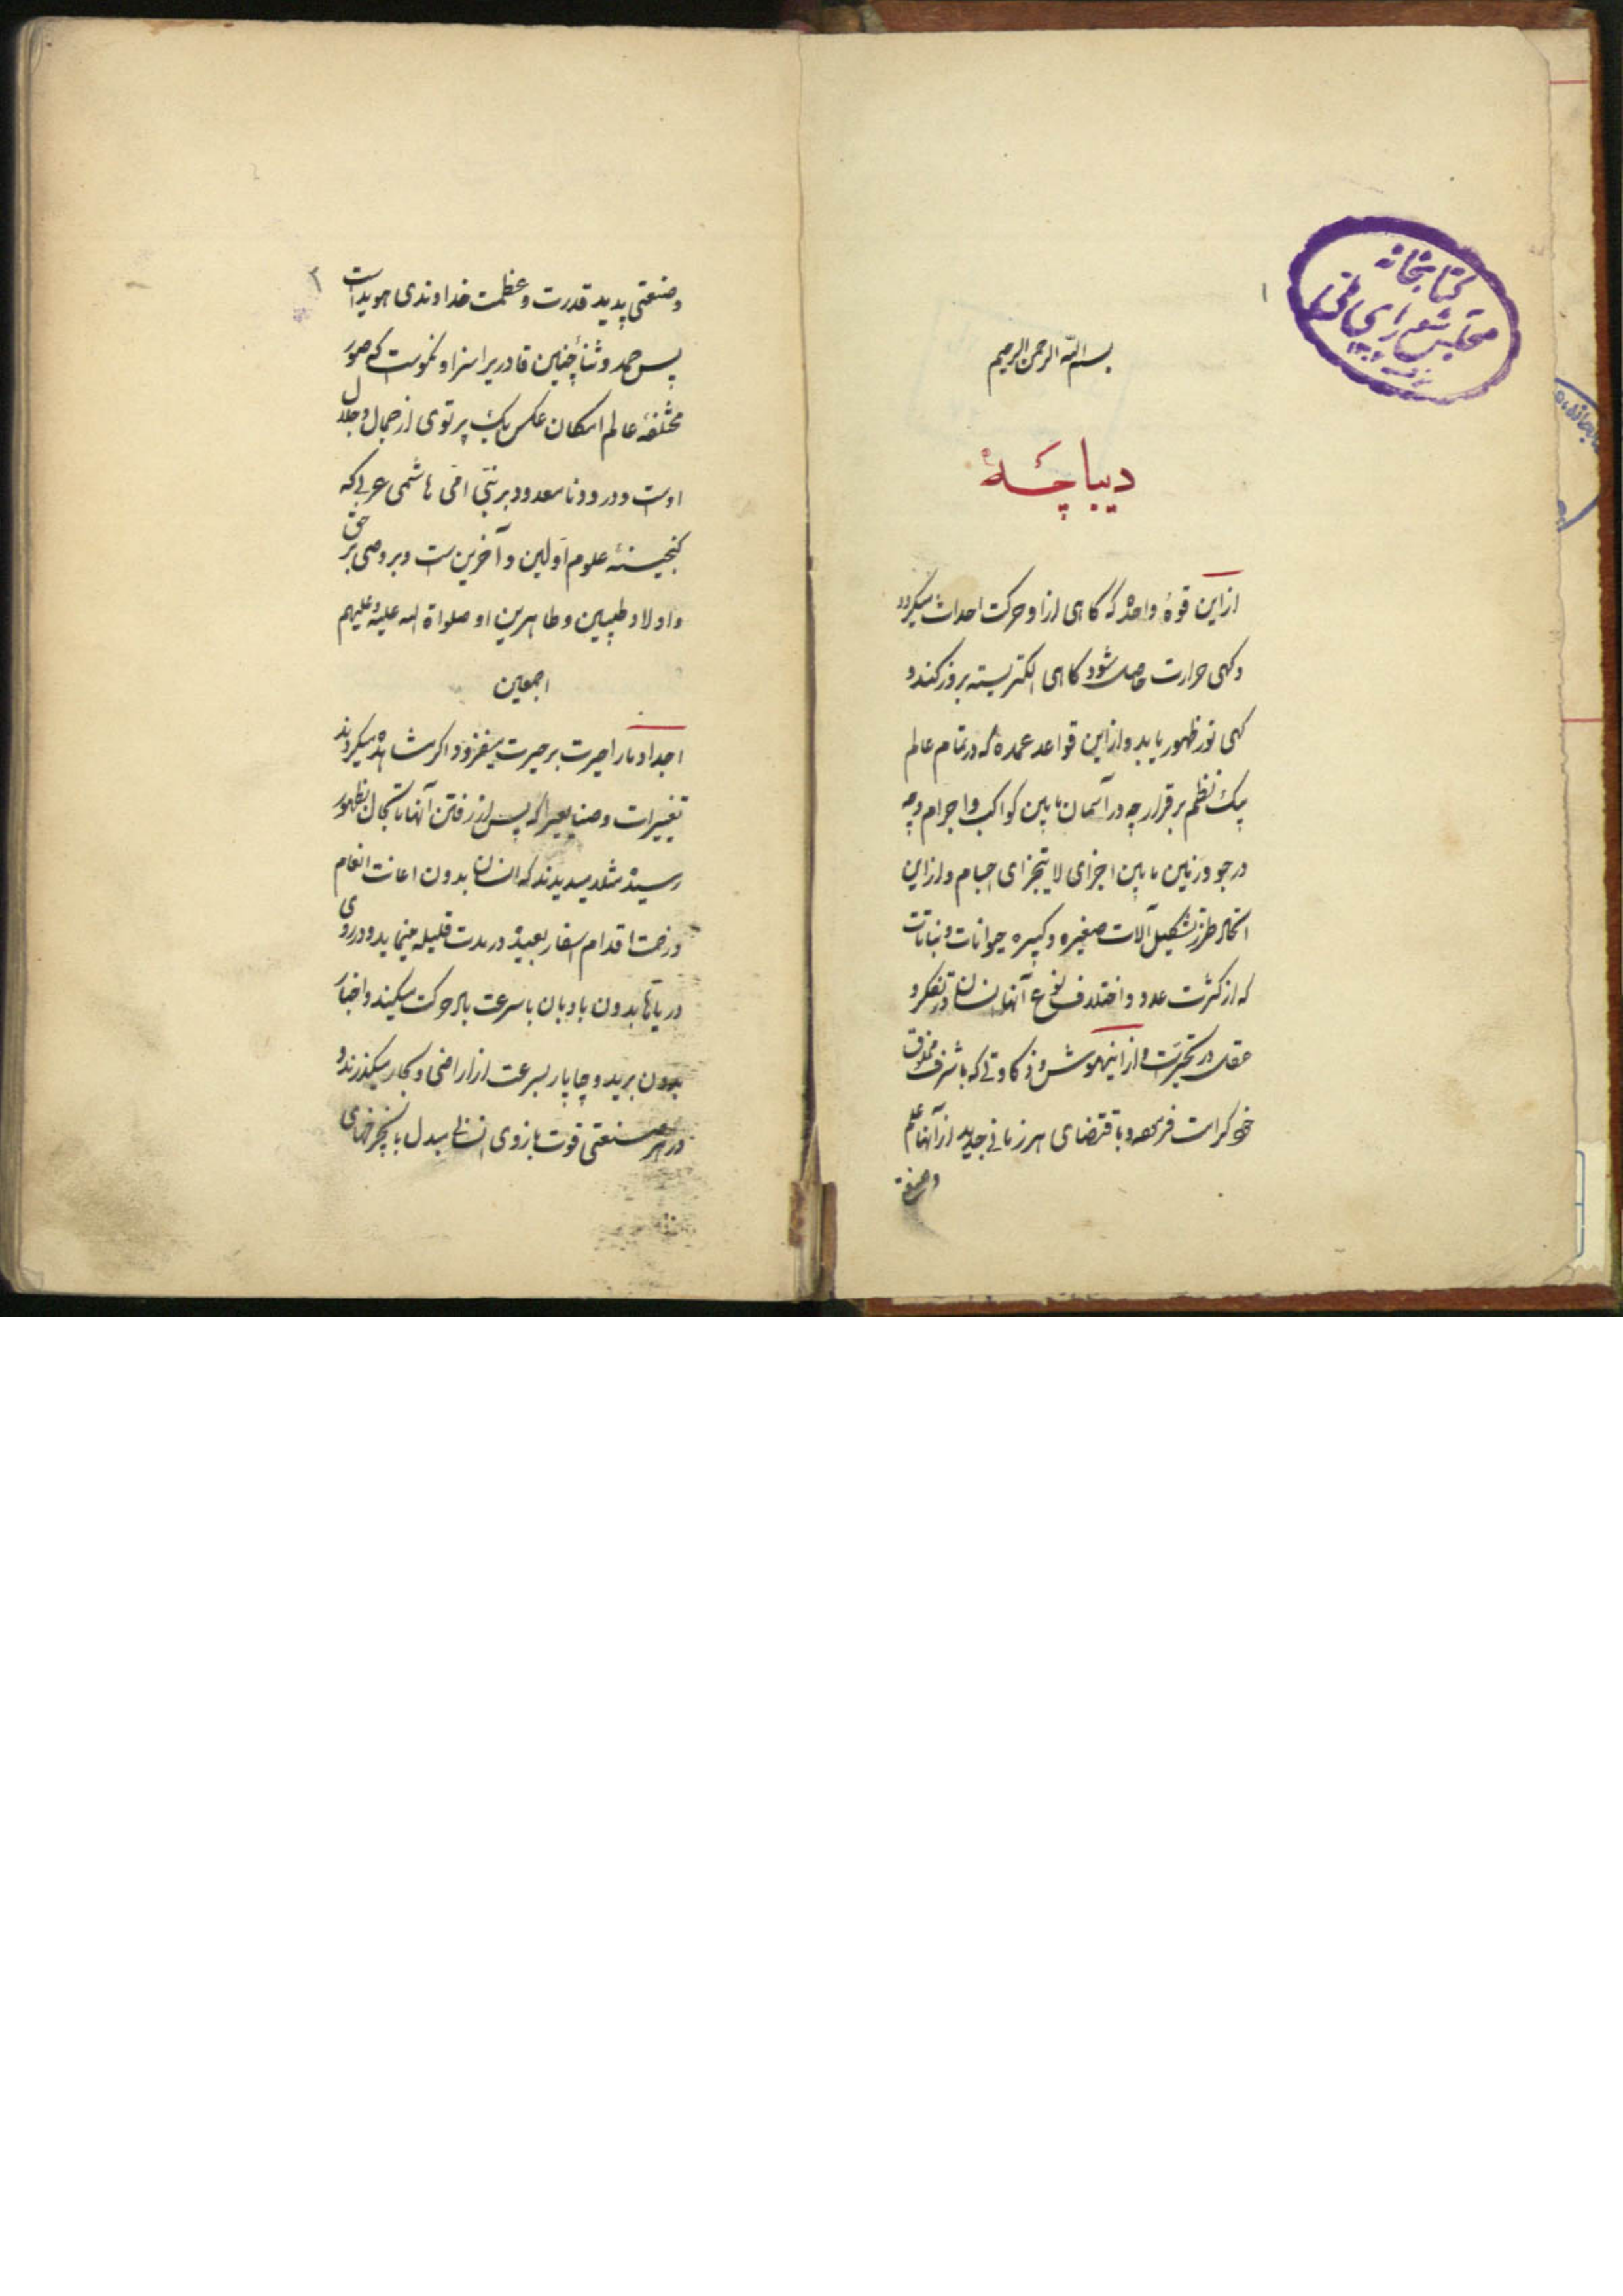 ۱
کتابخانه
مجلس شورای ملی
بسم الله الرحمن الرحیم
دیباچهٔ
از این قوهٔ واحده که گاهی از او حرکت احداث میگردد
و گهی حرارت حاصل شود گاهی الکتریسته بروز کند و
گهی نور ظهور یابد و از این قواعد عمده که در تمام عالم
بیک نظم برقرار چه در آسمان مابین کواکب و اجرام و چه
در جو و زمین مابین اجزای لایتجزای اجسام و از این
طرز تشکیل آلات صغیره و کبیره حیوانات و نباتات
که از کثرت عدد و اختلاف نوع آنها انسان در تفکر و
عقل در تحیرست و از اینهوش و ذکاوتی که باشرف مخلوق
خود کرامت فرموده باقتضای هر زمانی جدید از آنها علم
و صنعتی
۲
و صنعتی پدید قدرت و عظمت خداوندی هویداست
پس حمد و ثنا چنین قادریرا سزا و نکوست که صور
مختلفهٔ عالم امکان عکس یک پرتوی از جمال و جلال
اوست و درود نامعدود بر نبی امی هاشمی عربی که
گنجینهٔ علوم اولین و آخرین ست و بر وصی بر حق
و اولاد طیبین و طاهرین او صلواة الله علیه و علیهم
اجمعین
اجداد ما را حیرت بر حیرت میفزود اگر مشاهده میکردند
تغییرات و صنایعیرا که پس از رفتن آنها تا بحال بظهور
رسیده مثلا میدیدند که انسان بدون اعانت انعام
و زحمت اقدام اسفار بعیده در مدت قلیله مینماید و در روی
دریاها بدون بادبان با سرعت باد حرکت میکنند و اخبار
بدون برید و چاپار بسرعت از اراضی و بحار میگذرند و
در هر صنعتی قوت بازوی انسانی مبدل با